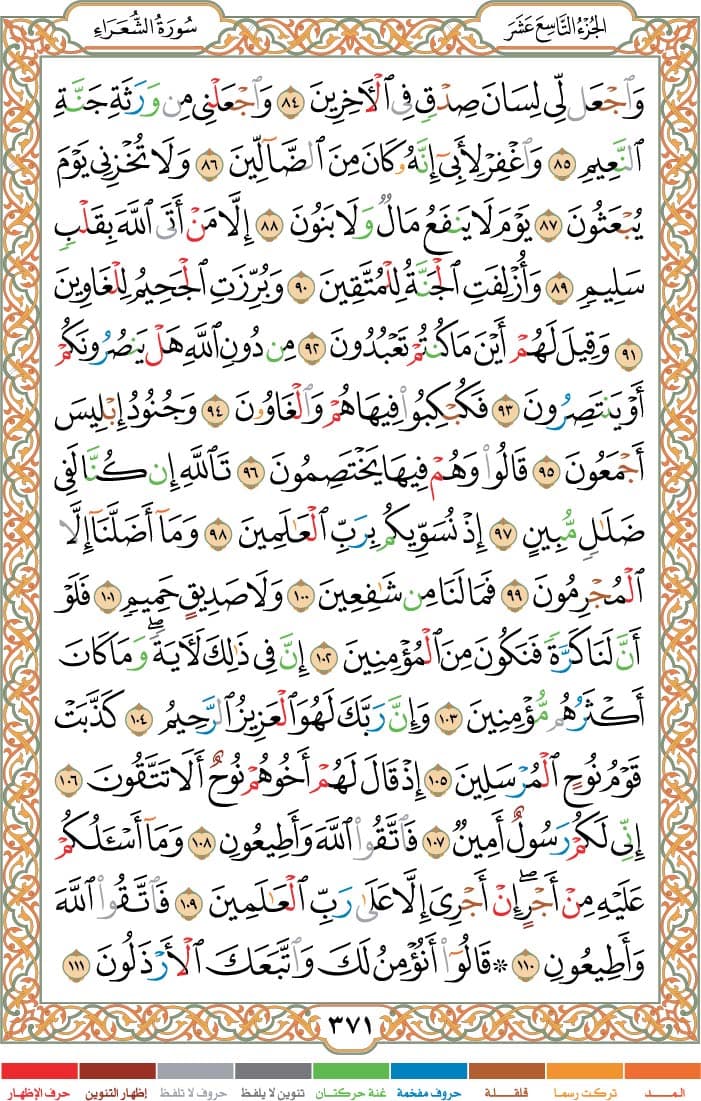 الجُزْءُ التَّاسِعَ عَشَرَ
سُورَةُ الشُّعَرَاءِ
وَٱجْعَل لِّى لِسَانَ صِدْقٍ فِى ٱلْأَخِرِينَ ٨٤ وَٱجْعَلْنِى مِن وَرَثَةِ جَنَّةِ
ٱلنَّعِيمِ ٨٥ وَٱغْفِرْ لِأَبِىٓ إِنَّهُۥ كَانَ مِنَ ٱلضَّآلِّينَ ٨٦ وَلَا تُخْزِنِى يَوْمَ
يُبْعَثُونَ ٨٧ يَوْمَ لَا يَنفَعُ مَالٌ وَلَا بَنُونَ ٨٨ إِلَّا مَنْ أَتَى ٱللَّهَ بِقَلْبٍ
سَلِيمٍ ٨٩ وَأُزْلِفَتِ ٱلْجَنَّةُ لِلْمُتَّقِينَ ٩٠ وَبُرِّزَتِ ٱلْجَحِيمُ لِلْغَاوِينَ
٩١ وَقِيلَ لَهُمْ أَيْنَ مَا كُنتُمْ تَعْبُدُونَ ٩٢ مِن دُونِ ٱللَّهِ هَلْ يَنصُرُونَكُمْ
أَوْ يَنتَصِرُونَ ٩٣ فَكُبْكِبُوا۟ فِيهَا هُمْ وَٱلْغَاوُۥنَ ٩٤ وَجُنُودُ إِبْلِيسَ
أَجْمَعُونَ ٩٥ قَالُوا۟ وَهُمْ فِيهَا يَخْتَصِمُونَ ٩٦ تَٱللَّهِ إِن كُنَّا لَفِى
ضَلَٰلٍ مُّبِينٍ ٩٧ إِذْ نُسَوِّيكُم بِرَبِّ ٱلْعَٰلَمِينَ ٩٨ وَمَآ أَضَلَّنَآ إِلَّا
ٱلْمُجْرِمُونَ ٩٩ فَمَا لَنَا مِن شَٰفِعِينَ ١٠٠ وَلَا صَدِيقٍ حَمِيمٍ ١٠١ فَلَوْ
أَنَّ لَنَا كَرَّةً فَنَكُونَ مِنَ ٱلْمُؤْمِنِينَ ١٠٢ إِنَّ فِى ذَٰلِكَ لَأَيَةً ۖ وَمَا كَانَ
أَكْثَرُهُم مُّؤْمِنِينَ ١٠٣ وَإِنَّ رَبَّكَ لَهُوَ ٱلْعَزِيزُ ٱلرَّحِيمُ ١٠٤ كَذَّبَتْ
قَوْمُ نُوحٍ ٱلْمُرْسَلِينَ ١٠٥ إِذْ قَالَ لَهُمْ أَخُوهُمْ نُوحٌ أَلَا تَتَّقُونَ ١٠٦
إِنِّى لَكُمْ رَسُولٌ أَمِينٌ ١٠٧ فَٱتَّقُوا۟ ٱللَّهَ وَأَطِيعُونِ ١٠٨ وَمَآ أَسْـَٔلُكُمْ
عَلَيْهِ مِنْ أَجْرٍ ۖ إِنْ أَجْرِىَ إِلَّا عَلَىٰ رَبِّ ٱلْعَٰلَمِينَ ١٠٩ فَٱتَّقُوا۟ ٱللَّهَ
وَأَطِيعُونِ ١١٠ ۞ قَالُوٓا۟ أَنُؤْمِنُ لَكَ وَٱتَّبَعَكَ ٱلْأَرْذَلُونَ ١١١
٣٧١
المـــد تركت رسما قلقـلة حروف مفخمة غنة حركتان تنوين لا يلفظ حروف لا تلفظ إظهار التنوين حرف الإظهار